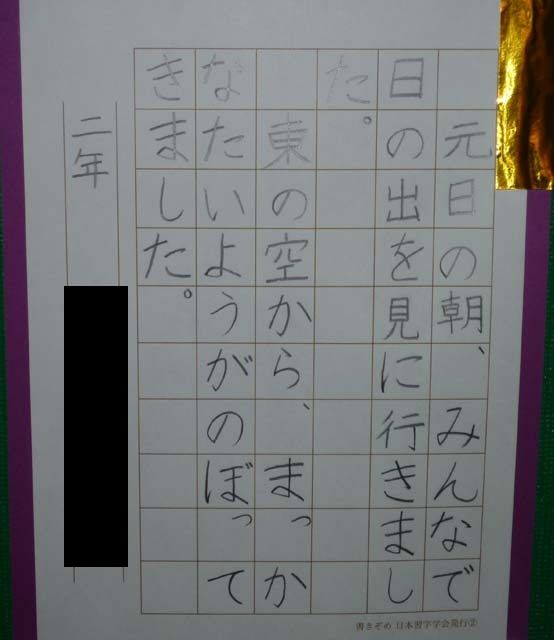 元日の朝、みんなで
日の出を見に行きまし
た。
東の空から、まっか
なたいようがのぼって
きました。
二年
書きぞめ 日本習字学会発行②